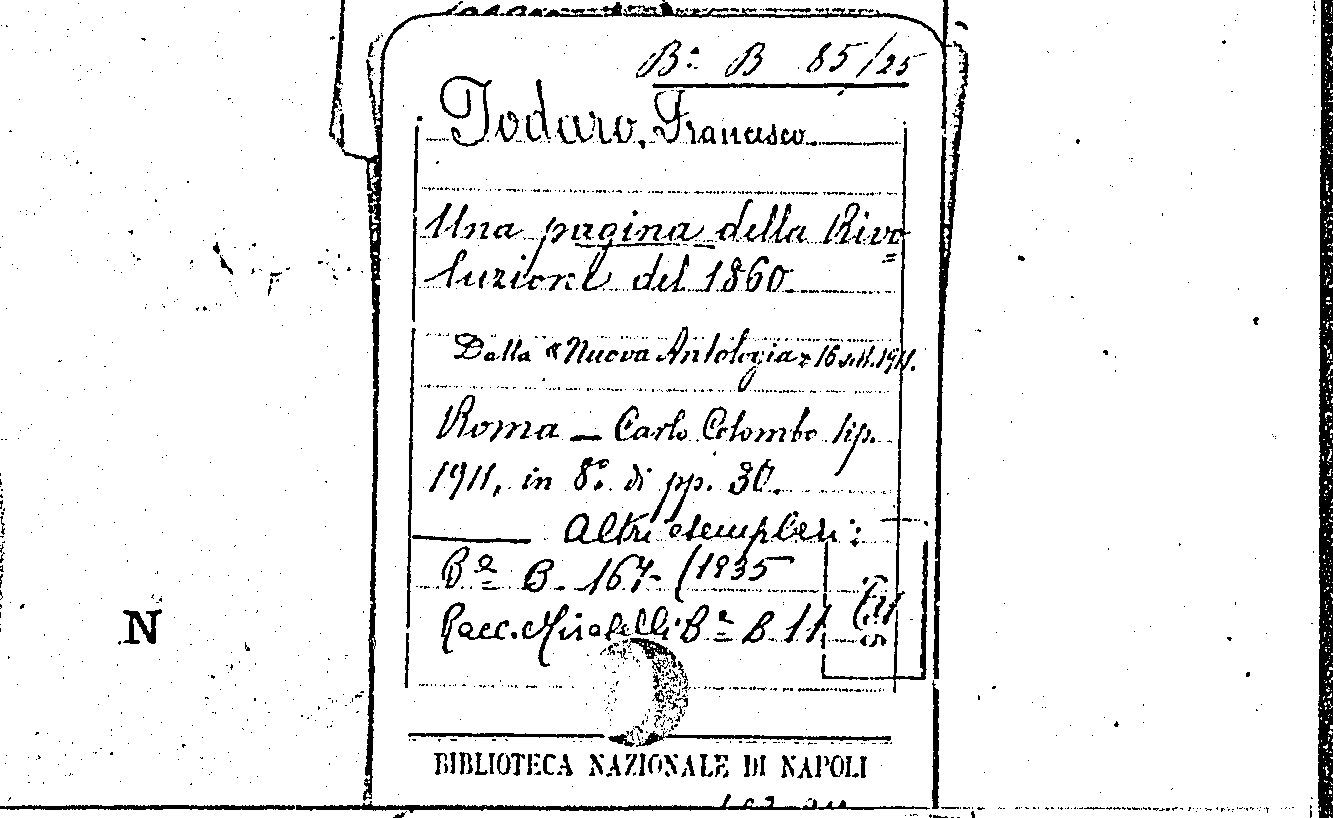 Bª B 85/25
Todaro, Francesco.
Una pagina della Rivo=
luzione del 1860.
Dalla «Nuova Antologia» 16 sett. 1911.
Roma – Carlo Colombo tip.
1911, in 8º. di pp. 30.
Altri esemplari:
Bª B. 167- (1935
Racc. Mirabelli Bª B 11
N
BIBLIOTECA NAZIONALE DI NAPOLI